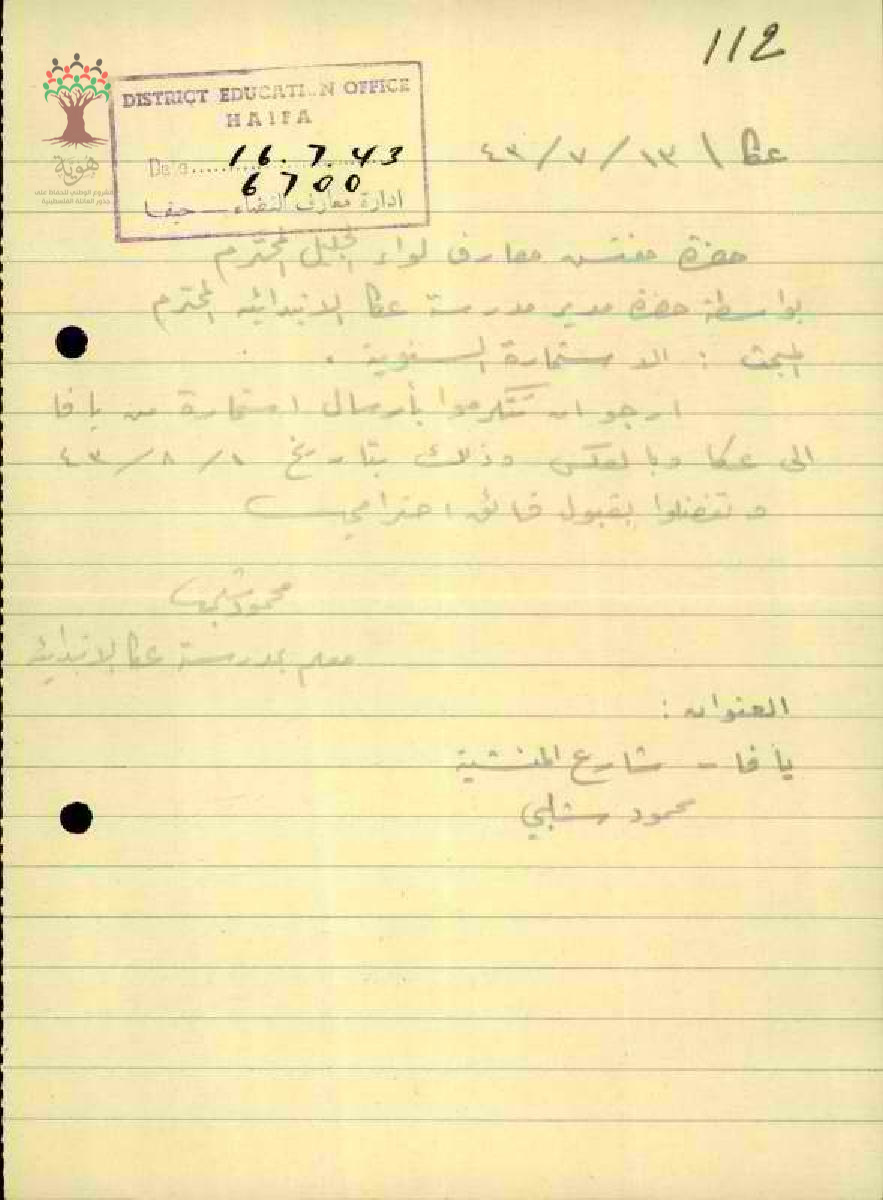 112
هوية
المشروع الوطني للحفاظ على
جذور العائلة الفلسطينية
DISTRICT EDUCATION OFFICE
HAIFA
Date 16.7.43
6700
ادارة معارف القضاء - حيفا
عكا \ ١٣ / ٧ / ٤٣
حضرة مفتش معارف لواء الجليل المحترم
بواسطة حضرة مدير مدرسة عكا الابتدائيه المحترم
المبحث : الاستمارة السنوية .
ارجو ان تتكرموا بأرسال استمارة من يافا
الى عكا وبالعكس وذلك بتاريخ ١ / ٨ / ٤٣
وتفضلوا بقبول فائق احترامي
محمود شلبي
معلم بمدرسة عكا الابتدائيه
العنوان :
يافا - شارع المنشية
محمود شلبي